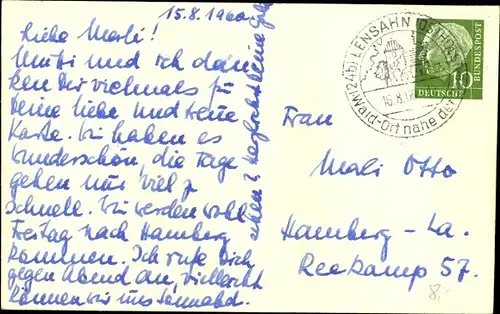 15.8.1960.
Liebe Marli!
Mutti und ich dan-
ken Dir vielmals für
Deine liebe und treue
Karte. Wir haben es
wunderschön, die Tage
gehen nur viel zu
schnell. Wir werden wohl
Freitag nach Hamburg
kommen. Ich rufe Dich
gegen Abend an, vielleicht
können wir uns Sonnabd.
sehen
herzlichst Deine
(24b) LENSAHN (OSTHOLST
16.8.
Wald-Ort nahe der
DEUTSCHE
BUNDESPOST
10
Frau
Mali Otto
Hamburg - La.
Reekamp 57.
8,-